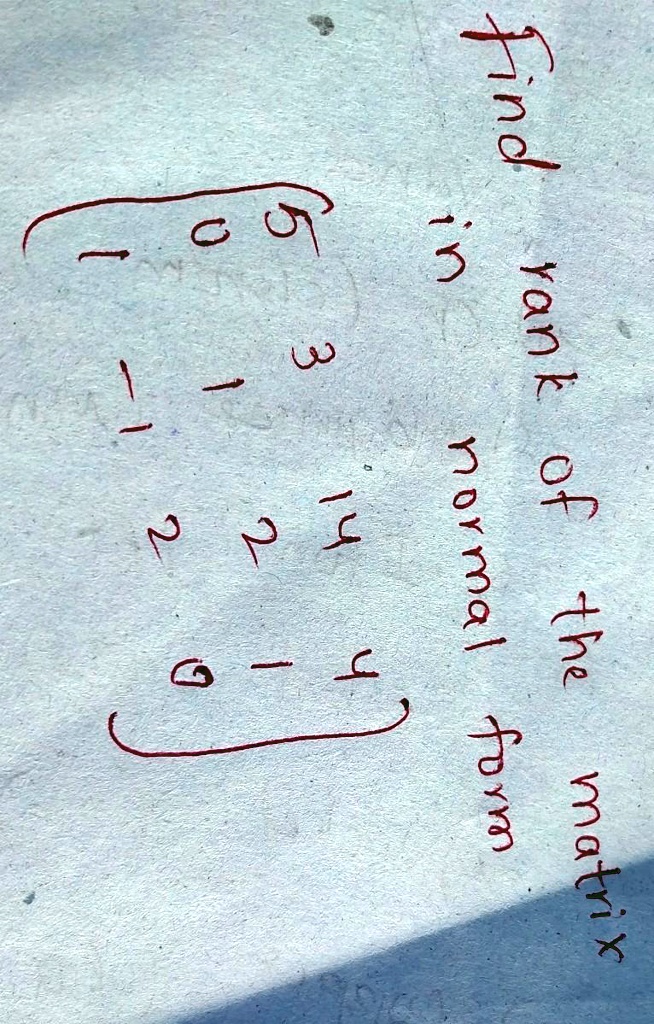 Find rank of the matrix
in normal form
5 3 14 4
0 1 2 1
1 -1 2 0